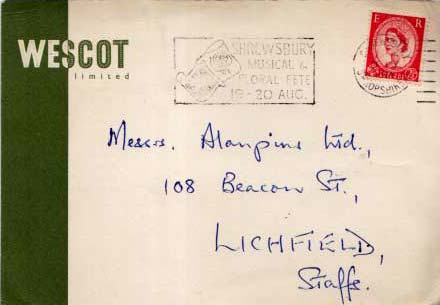 WESCOT
limited
SHREWSBURY
MUSICAL &
FLORAL FETE
19-20 AUG.
E R
Messrs. Alanpine Ltd.,
108 Beacon St.,
LICHFIELD,
Staffs.